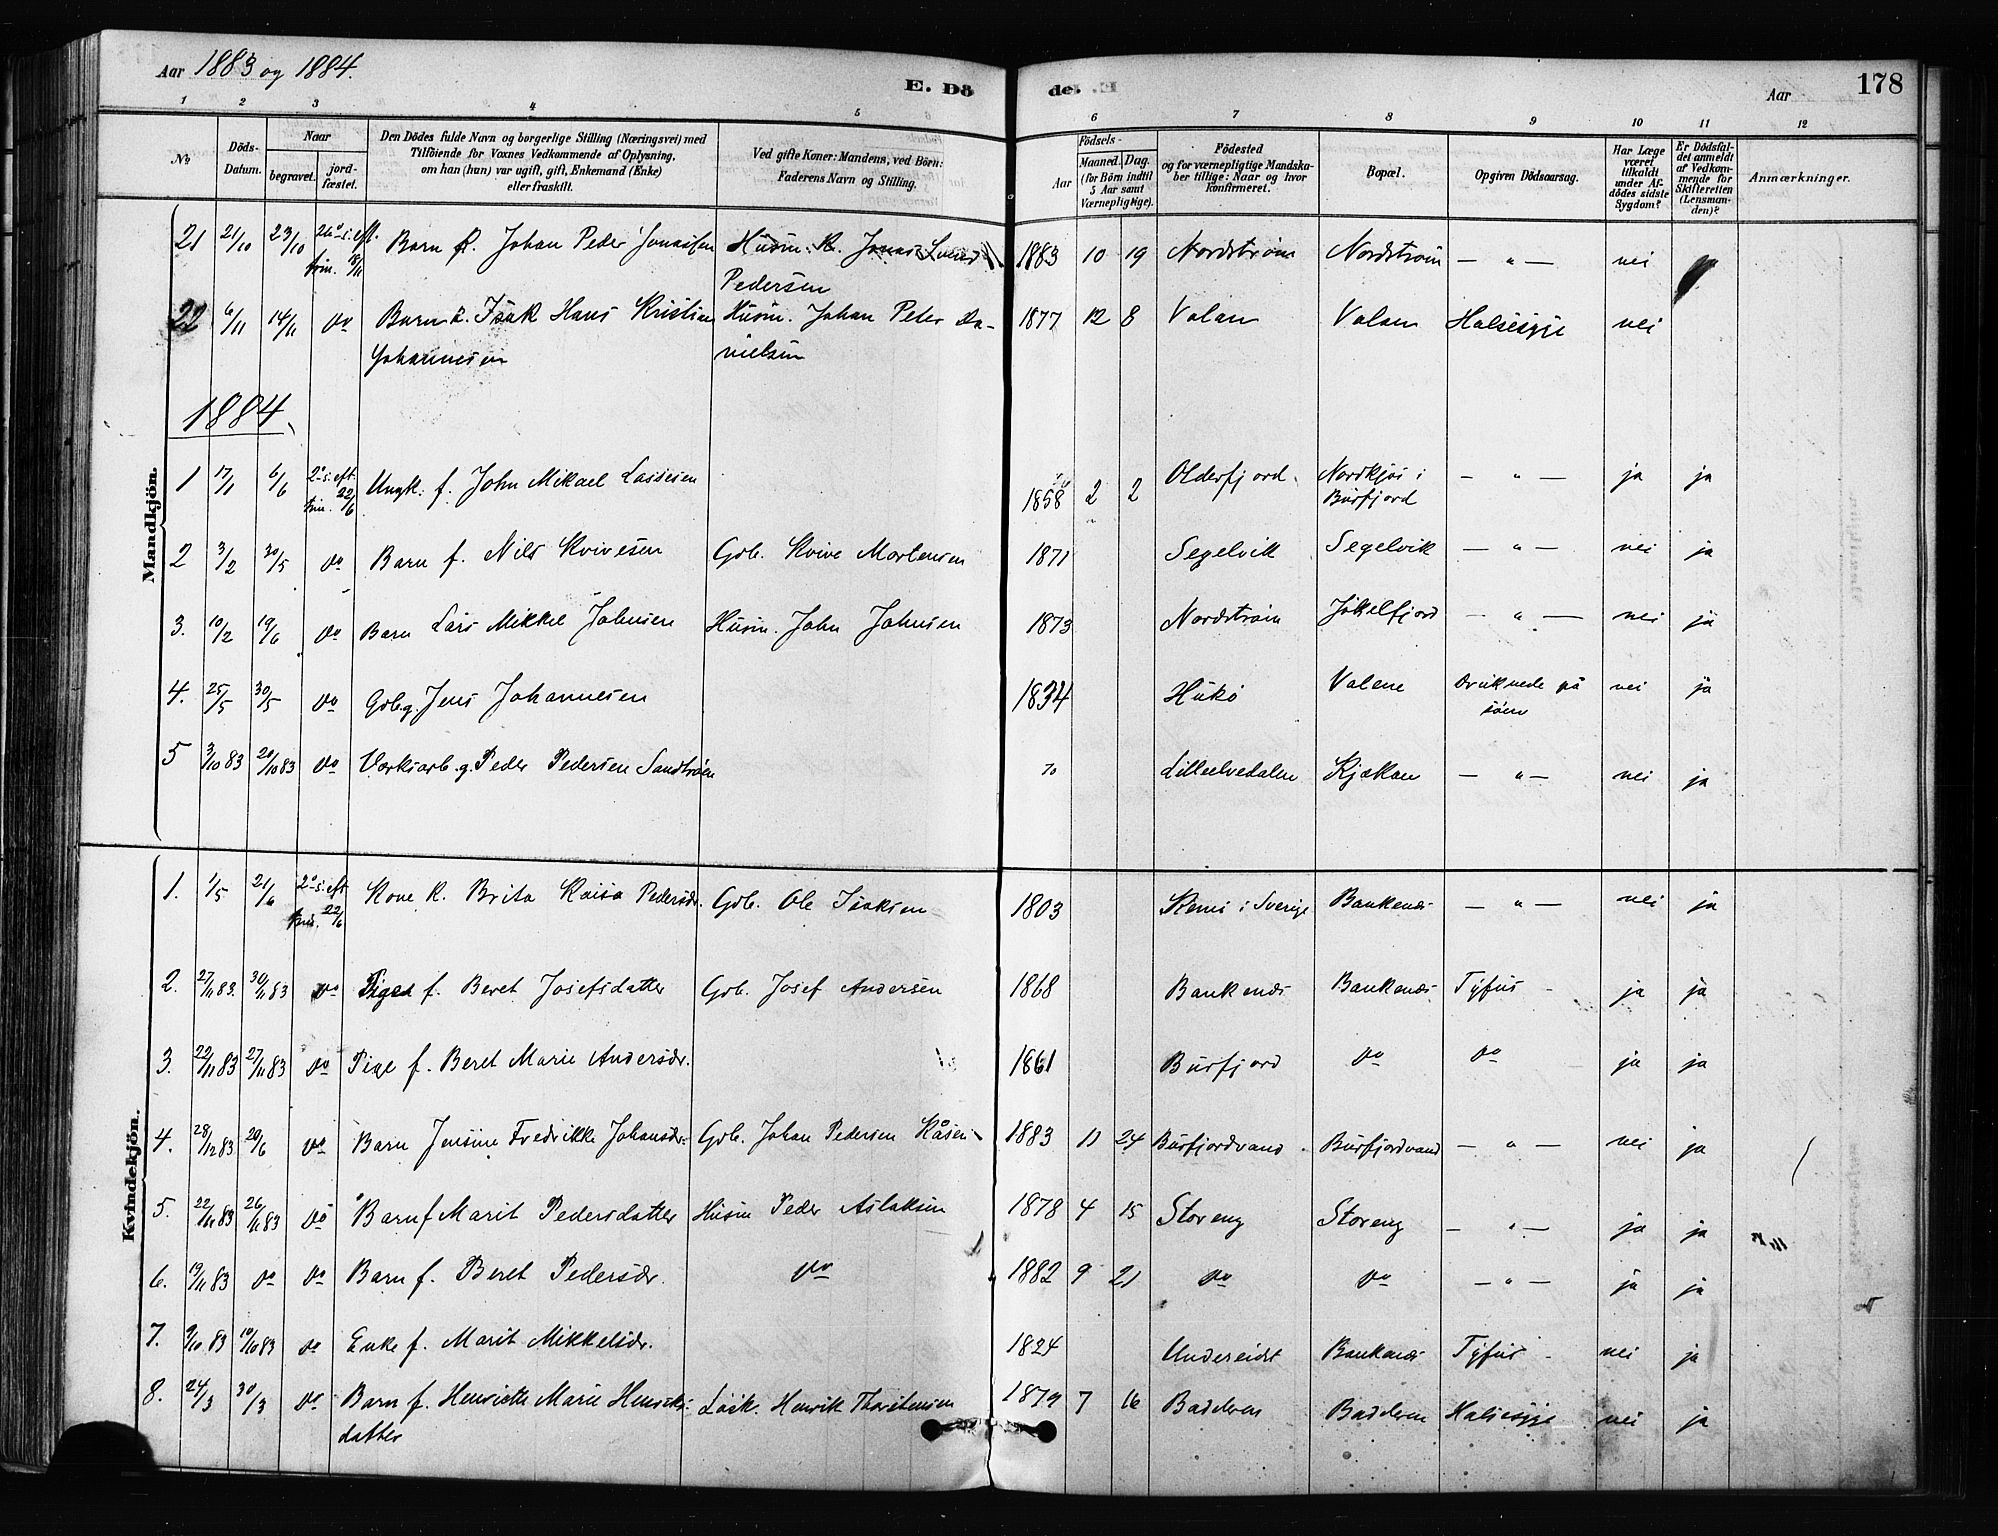 Aar 1883 og 1884.
E. Döde.
Aar
178
1 2 3 4 5 6 7 8 9 10 11 12
No
Döds-Datum.
Naar
begravet.
jord-fæstet.
Den Dödes fulde Navn og borgerlige Stilling (Næringsvei) med
Tilföiende for Voxnes Vedkommende af Oplysning,
om han (hun) var ugift, gift, Enkemand (Enke)
eller fraskilt.
Ved gifte Koner: Mandens, ved Börn:
Faderens Navn og Stilling.
Födsels-
Aar
Maaned. Dag.
(for Börn indtil
5 Aar samt
Værnepligtige).
Födested
og for værnepligtige Mandska-
ber tillige: Naar og hvor
konfirmeret.
Bopæl.
Opgiven Dödsaarsag.
Har Læge
været
tilkaldt
under Af-
dödes sidste
Sygdom?
Er Dödsfal-
det anmeldt
af Vedkom-
mende for
Skifteretten
(Lensman-
den)?
Anmærkninger.
Mandkjön.
21 21/10 23/10 26de s. eft. trin. 18/11 Barn Johan Peder Jonassen Husm. Jonas 1883 10 19 Nordstrøm Nordstrøm — " — nei ja
Pedersen
22 6/11 14/11 do Barn Isak Hans Kristian Husm. Johan Peter Da- 1877 12 8 Valan Valan Halsesyge nei
Johannesen nielsen
1884.
1 17/1 6/6 2den s. eft. trin. 22/6 Ungk. f. John Mikael Lassesen 1858 2 2 Olderfjord. Nordkjos i Burfjord — " — ja ja
2 3/2 30/5 do Barn f. Nils Kvivesen Gdb. Kvive Mortensen 1871 Segelvik Segelvik — " — nei ja
3. 10/2 19/6 do Barn Lars Mikkel Johnsen Husm. John Johnsen 1873 Nordstrøm Jøkelfjord — " — nei ja
4. 25/5 30/5 do Gdb. g. Jens Johannesen 1834 Hukø Valene Druknede på søen nei ja
5 3/10 83 20/10 83 do Værksarb. g. Peder Pedersen Sandtrøen 70 Lilleelvedalen Kjækan — " — nei ja
Kvindekjön.
1. 1/5 21/6 2den s. eft. trin. 22/6 Kone k. Brita Kaisa Pedersdr. Gdb. Ole Isaksen 1803 Kemi i Sverige Bankenæs — " — nei ja
2. 27/11 83. 30/11 83 do Pige f. Beret Josefsdatter Gdb. Josef Andersen 1868 Bankenæs Bankenæs Tyfus ja ja
3. 22/11 83 27/11 83 do Pige f. Beret Marie Andersdr. 1861 Burfjord do do ja ja
4. 28/12 83. 20/6 do Barn Jensine Fredrikke Johansdr. Gdb. Johan Pedersen Kåsen 1883 11 24 Burfjordvand Burfjordvand — " — nei ja
5. 22/11 83 26/11 83 do Barn f Marit Pedersdatter Husm Peder Aslaksen 1878 4 15 Storeng Storeng — " — ja ja
6. 19/11 83 do do Barn f. Beret Pedersdr. do 1882 9 21 do do — " — ja ja
7. 9/10 83 10/10 83 do Enke f. Marit Mikkelsdr. 1824 Undereidet Bankenæs Tyfus nei ja
8. 24/3 30/3 do Barn f. Henriette Marie Henriks- Løsk. Henrik Thorstensen 1879 7 16 Badderen Badderen Halsesyge nei ja
datter